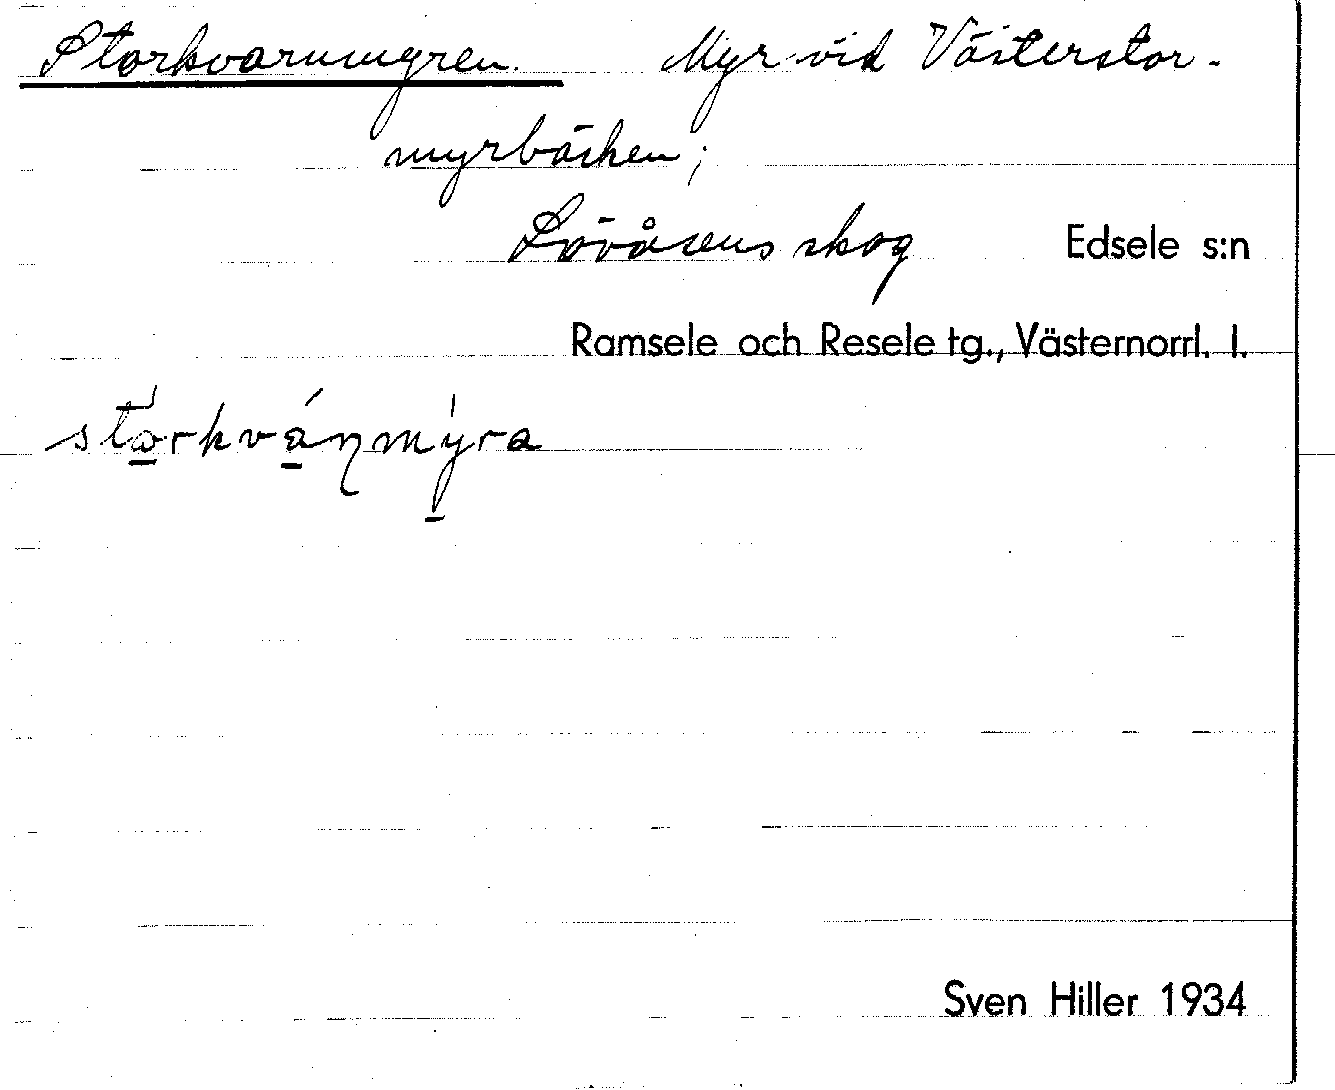 Storkvarnmyren. Myr vid Västerstor-
myrbäcken;
Lövåsens skog Edsele s:n
Ramsele och Resele tg., Västernorrl. l.
Sven Hiller 1934